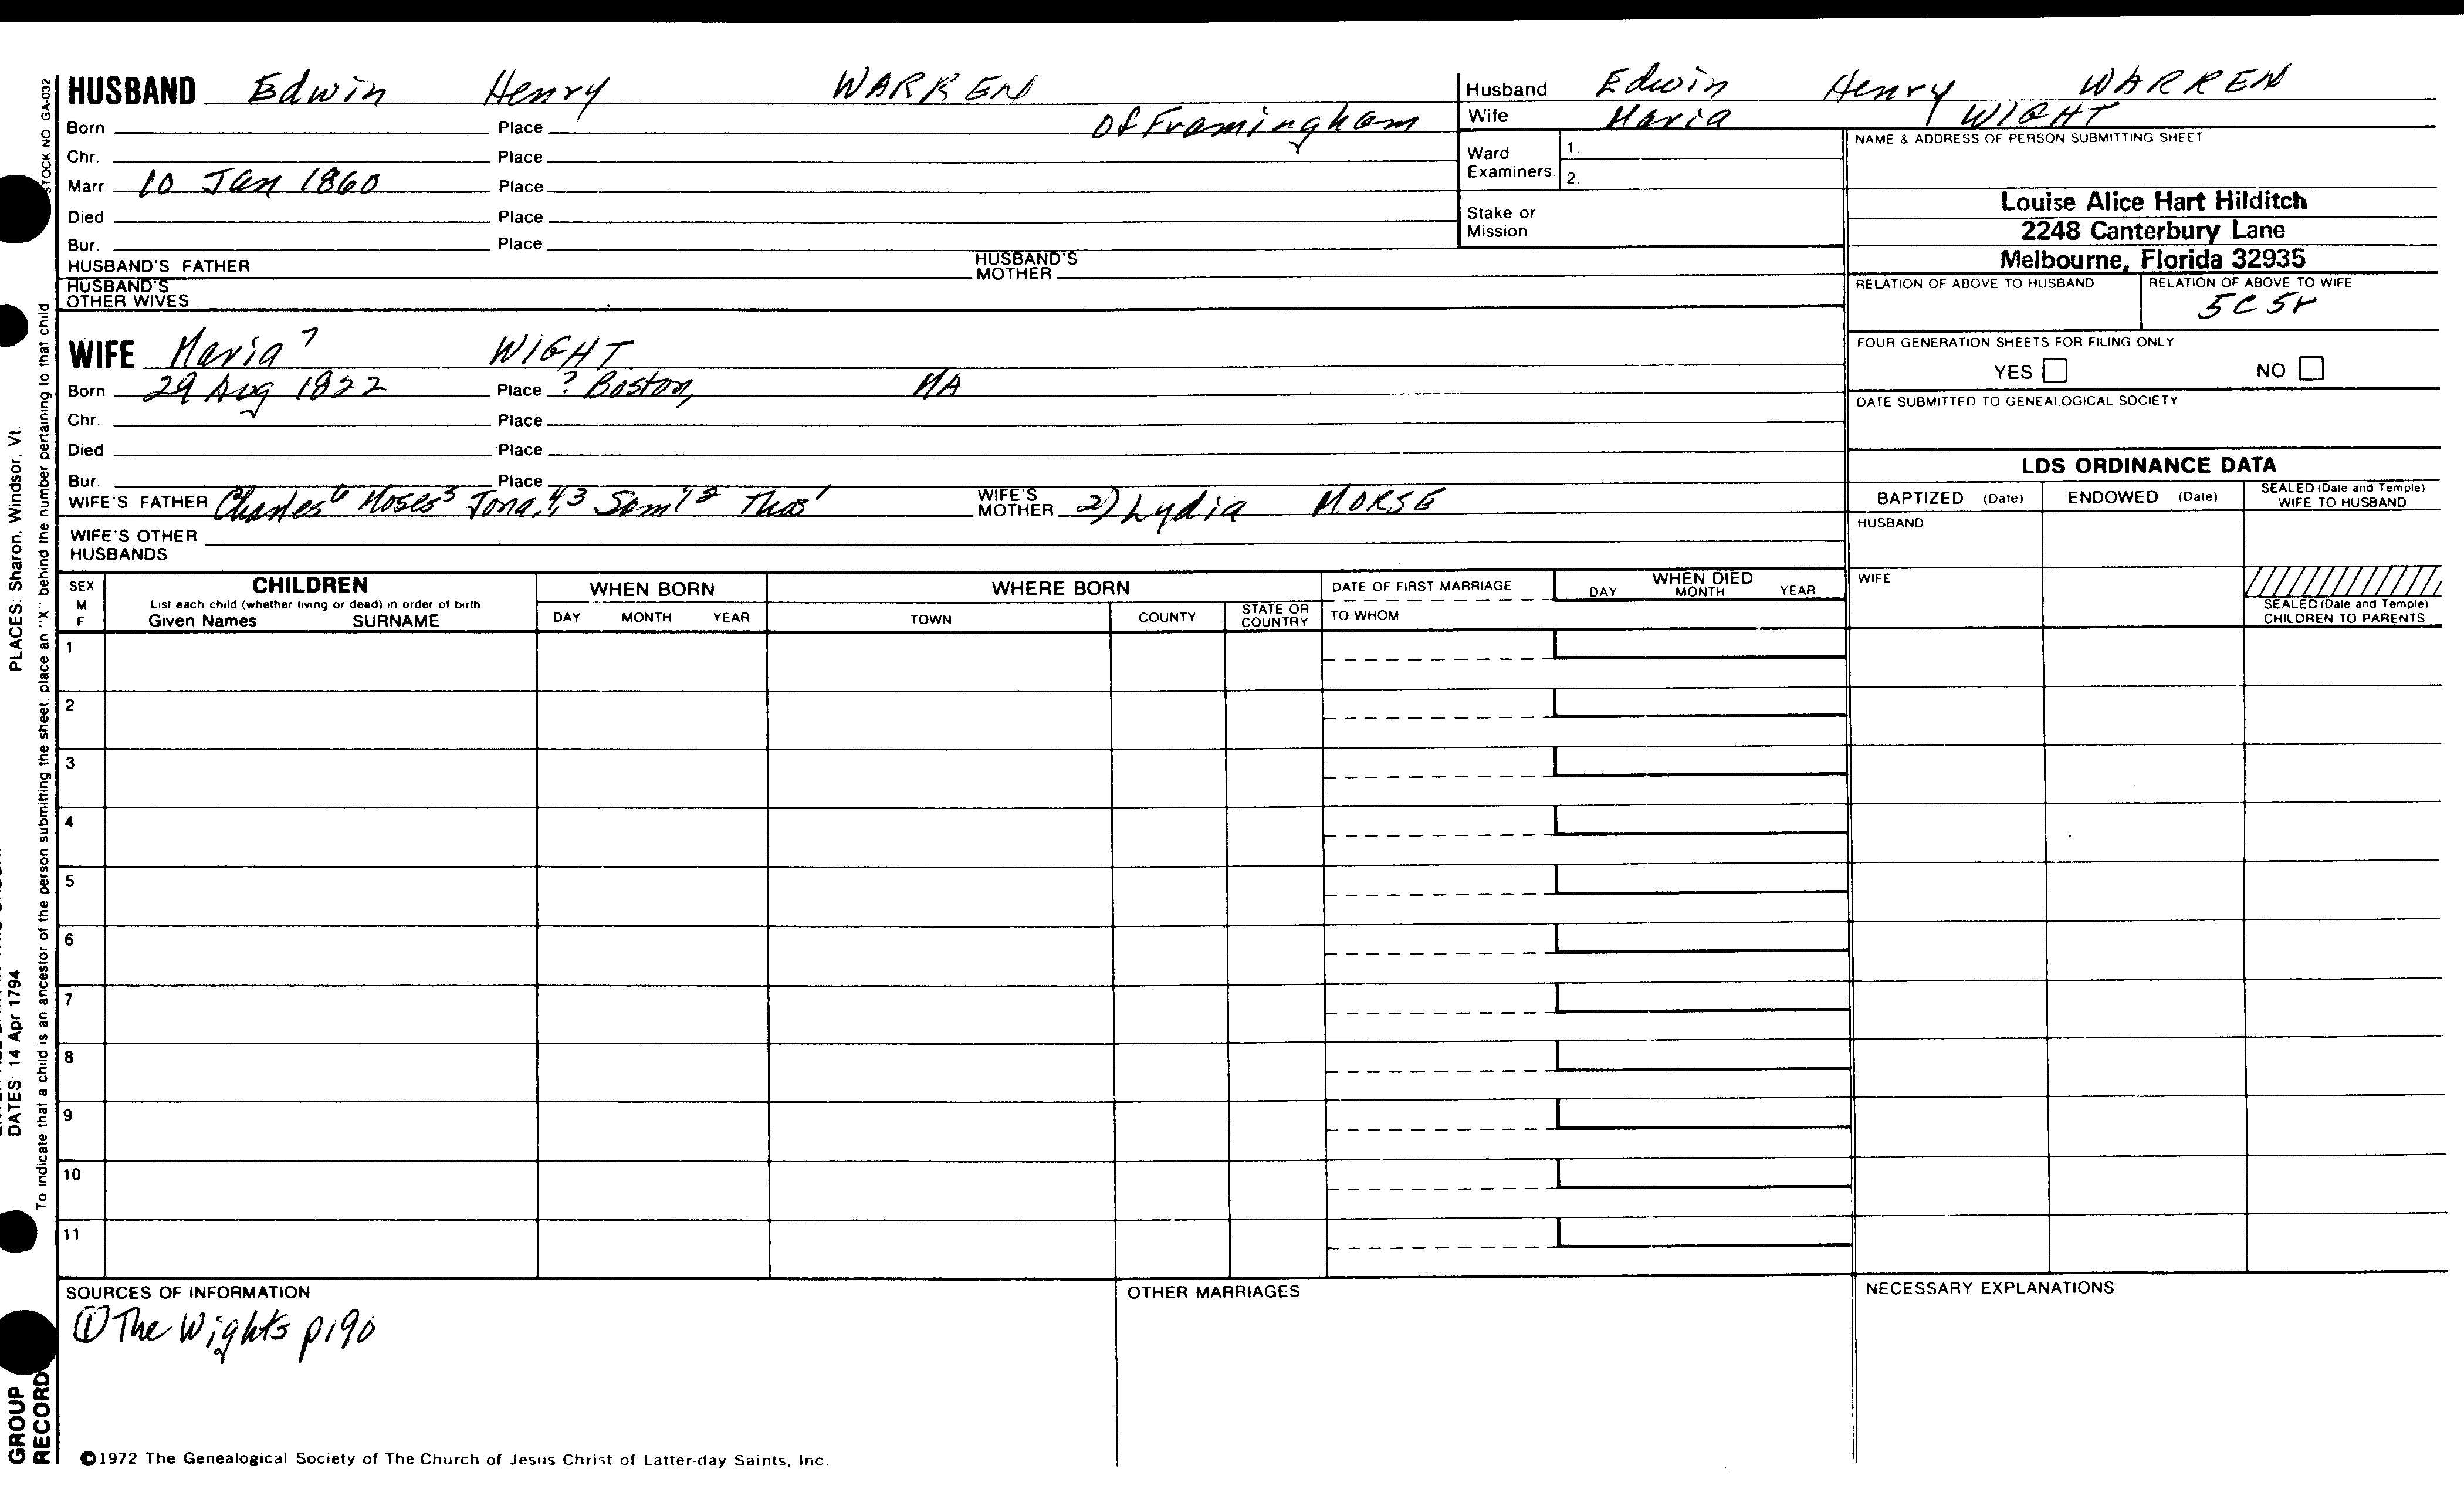 HUSBAND Edwin Henry WARREN
Born Place of Framingham
Chr. Place
Marr. 10 Jan 1860 Place
Died Place
Bur. Place
HUSBAND'S FATHER HUSBAND'S MOTHER
HUSBAND'S OTHER WIVES
Husband Edwin Henry WARREN
Wife Maria WIGHT
Ward Examiners 1.
2.
Stake or Mission
NAME & ADDRESS OF PERSON SUBMITTING SHEET
Louise Alice Hart Hilditch
2248 Canterbury Lane
Melbourne, Florida 32935
RELATION OF ABOVE TO HUSBAND RELATION OF ABOVE TO WIFE
5C5r
FOUR GENERATION SHEETS FOR FILING ONLY
YES NO
DATE SUBMITTED TO GENEALOGICAL SOCIETY
WIFE Maria⁷ WIGHT
Born 29 Aug 1822 Place ? Boston, MA
Chr. Place
Died Place
Bur. Place
WIFE'S FATHER Charles⁶ Moses⁵ Jona⁴,³ Sam'l² Thos¹ WIFE'S MOTHER 2) Lydia MORSE
WIFE'S OTHER HUSBANDS
LDS ORDINANCE DATA
BAPTIZED (Date) ENDOWED (Date) SEALED (Date and Temple) WIFE TO HUSBAND
HUSBAND
WIFE
SEALED (Date and Temple) CHILDREN TO PARENTS
SEX M F
CHILDREN
List each child (whether living or dead) in order of birth
Given Names SURNAME
WHEN BORN
DAY MONTH YEAR
WHERE BORN
TOWN COUNTY STATE OR COUNTRY
DATE OF FIRST MARRIAGE
TO WHOM
WHEN DIED
DAY MONTH YEAR
1
2
3
4
5
6
7
8
9
10
11
SOURCES OF INFORMATION
① The Wights p190
OTHER MARRIAGES
NECESSARY EXPLANATIONS
©1972 The Genealogical Society of The Church of Jesus Christ of Latter-day Saints, Inc.
STOCK NO GA-032
To indicate that a child is an ancestor of the person submitting the sheet, place an "X" behind the number pertaining to that child
DATES: 14 Apr 1794
PLACES: Sharon, Windsor, Vt.
GROUP
RECORD